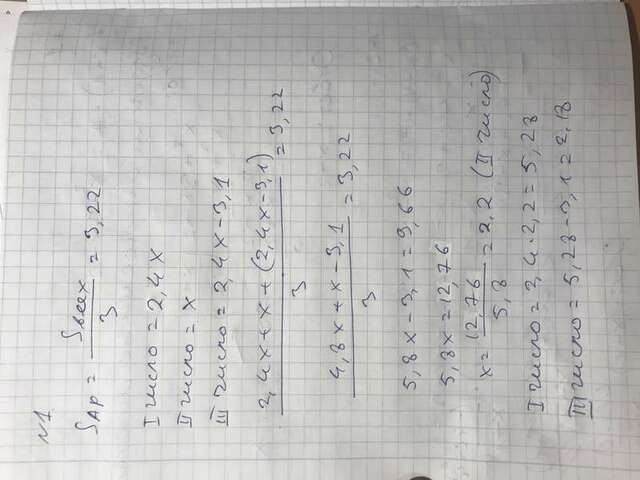 №1
Sар = Sвсех/3 = 3,22
I число = 2,4x
II число = x
III число = 2,4x-3,1
2,4x+x+(2,4x-3,1)/3 = 3,22
4,8x+x-3,1/3 = 3,22
5,8x-3,1=9,66
5,8x=12,76
x=12,76/5,8=2,2 (II число)
I число = 2,4·2,2=5,28
III число = 5,28-3,1=2,18